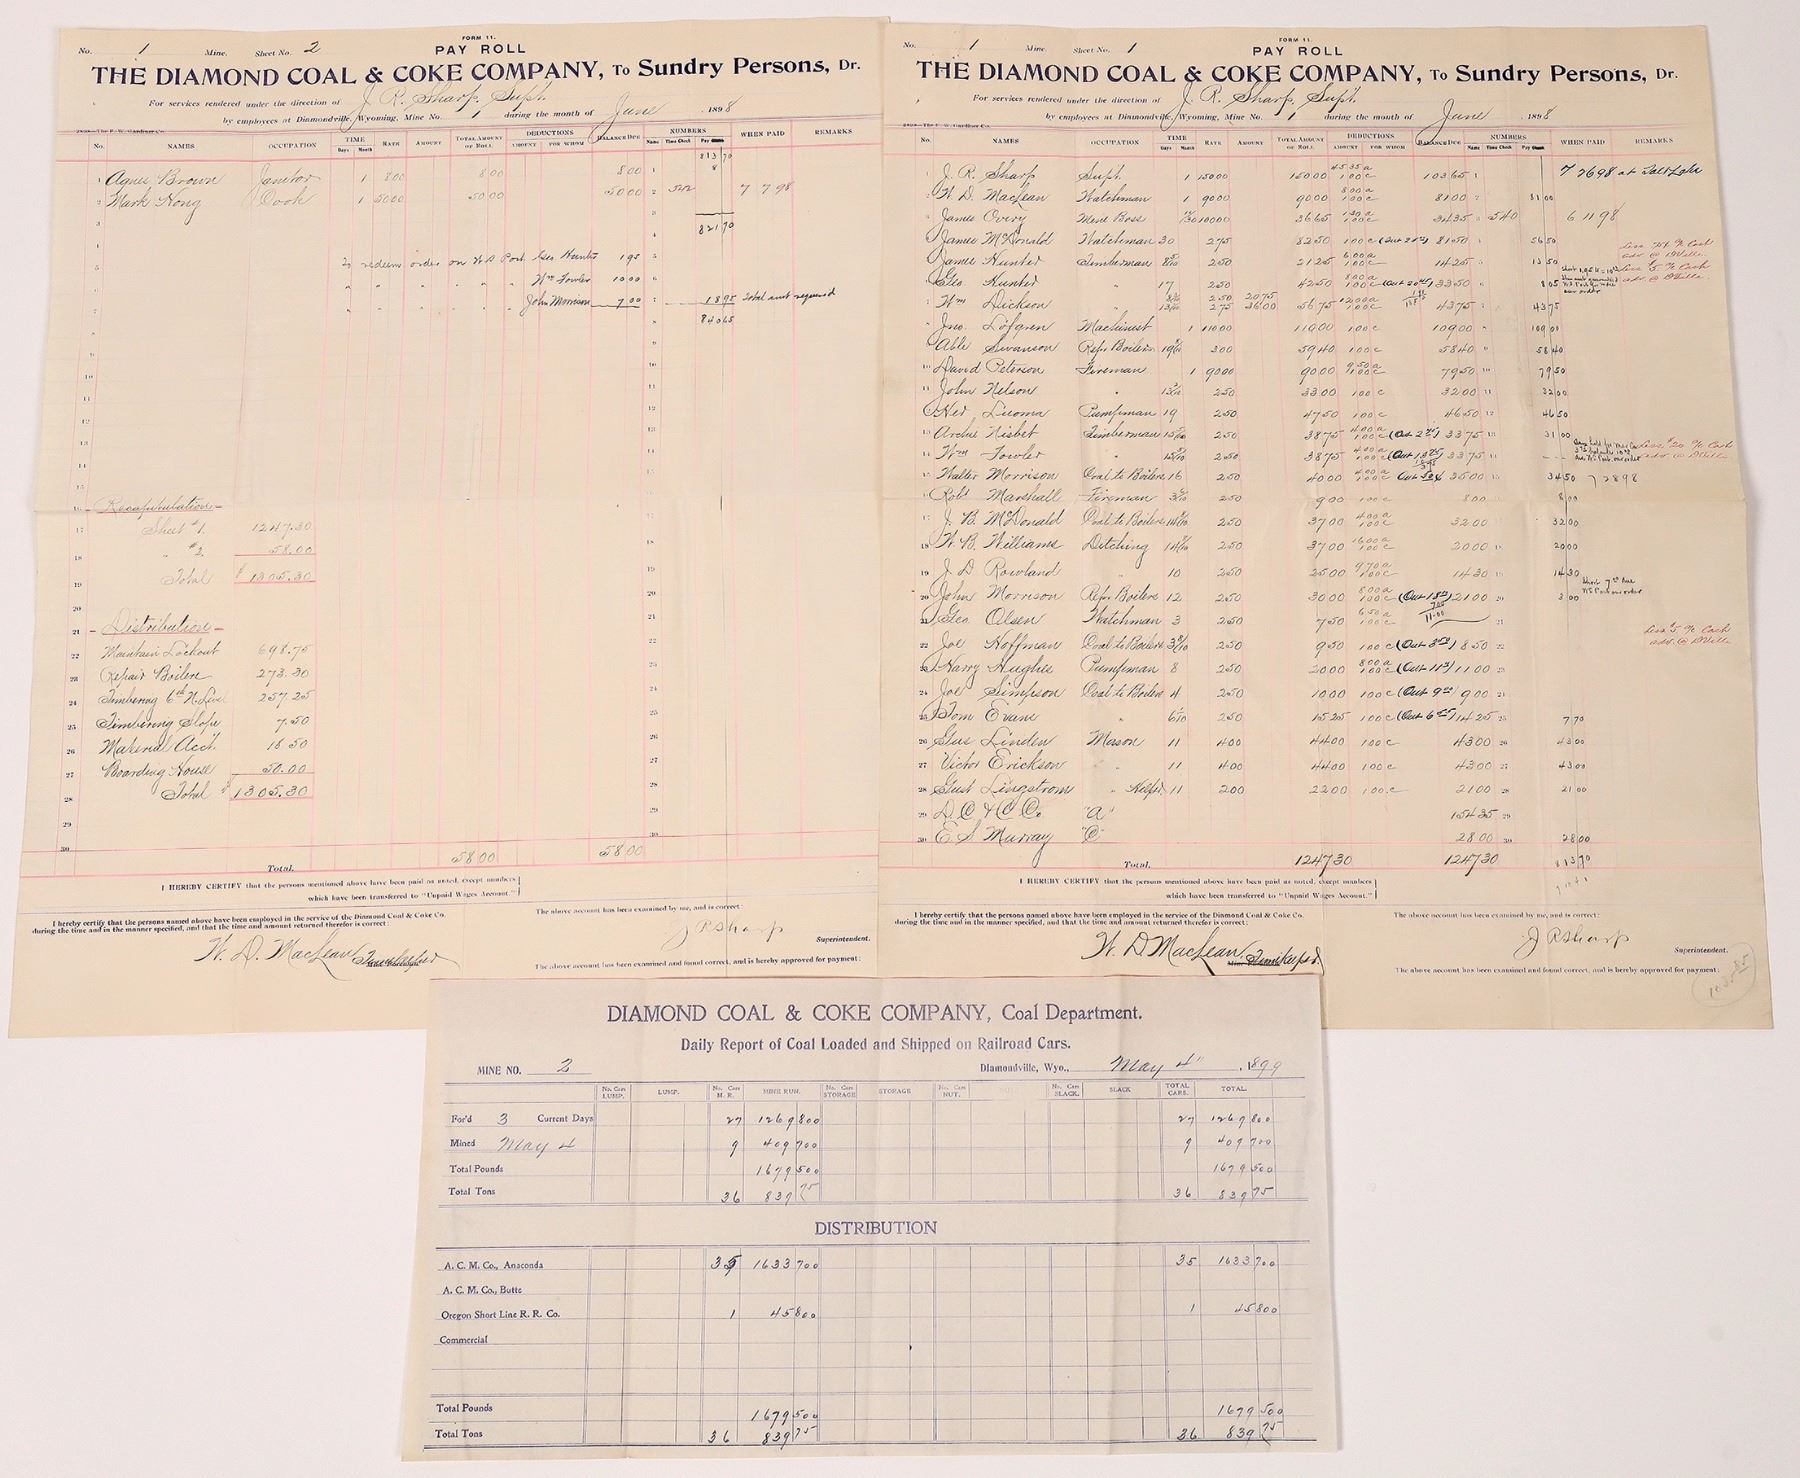 FORM 11.
No. 1 Mine. Sheet No. 2 PAY ROLL
THE DIAMOND COAL & COKE COMPANY, To Sundry Persons, Dr.
For services rendered under the direction of J. R. Sharp, Supt.
by employees at Diamondville, Wyoming, Mine No. 1 during the month of June 1898
No. NAMES OCCUPATION TIME Days Month RATE AMOUNT TOTAL AMOUNT OF ROLL DEDUCTIONS AMOUNT FOR WHOM BALANCE DUE NUMBERS Name Time Check Pay Check WHEN PAID REMARKS
813 70
1 Agnes Brown Janitor 1 8 00 8 00 8 00 1 8
2 Mark Hong Cook 1 50 00 50 00 50 00 2 7 7 98
3 821 70
To redeem order on W.A. Port Geo Hunter 1 95
" " " " " Wm Fowler 10 00
" " " " " John Morrison 7.00 18 95 Total amt required
840 65
Recapitulation
Sheet #1. 1247.30
" #2. 58.00
Total $ 1305.30
Distribution
Maintain Lockout 698.75
Repair Boilers 273.30
Timbering 6th N. Level 257.25
Timbering Slope 7.50
Material Acct. 18.50
Boarding House 50.00
Total $ 1305.30
Total. 58 00 58 00
I HEREBY CERTIFY that the persons mentioned above have been paid as noted, except numbers
which have been transferred to "Unpaid Wages Account."
I hereby certify that the persons named above have been employed in the service of the Diamond Coal & Coke Co.
during the time and in the manner specified, and that the time and amount returned therefor is correct:
W. D. MacLean, Timekeeper
The above account has been examined by me, and is correct:
J R Sharp
Superintendent.
The above account has been examined and found correct, and is hereby approved for payment:
FORM 11.
No. 1 Mine. Sheet No. 1 PAY ROLL
THE DIAMOND COAL & COKE COMPANY, To Sundry Persons, Dr.
For services rendered under the direction of J. R. Sharp, Supt.
by employees at Diamondville, Wyoming, Mine No. 1 during the month of June 1898
No. NAMES OCCUPATION TIME Days Month RATE AMOUNT TOTAL AMOUNT OF ROLL DEDUCTIONS AMOUNT FOR WHOM BALANCE DUE NUMBERS Name Time Check Pay Check WHEN PAID REMARKS
1 J. R. Sharp Supt. 1 150 00 150 00 45 35 a 1 00 c 103 65 1 7 26 98 at Salt Lake
2 W. D. MacLean Watchman 1 90 00 90 00 8 00 a 1 00 c 81 00 2 81 00
James Overy Mine Boss 100 00 36 65 1 00 c 34 35 540 6 11 98
James McDonald Watchman 30 2 75 82 50 1 00 c 81 50 56 50
James Hunter Timberman 8 5/10 2 50 21 25 6 00 a 1 00 c 14 25 13 50
Geo. Hunter " 17 2 50 42 50 8 00 a 1 00 c 33 50 8 05
Wm Dickson " 2 50 20 75 2 75 36 00 56 75 12 00 a 1 00 c 43 75 43 75
Jno. Lofgren Machinist 1 110 00 110 00 1 00 c 109 00 109 00
Able Swanson Repr Boilers 19 8/10 3 00 59 40 1 00 c 58 40 58 40
10 David Peterson Fireman 1 90 00 90 00 9 50 a 1 00 c 79 50 10 79 50
11 John Nelson " 13 2/10 2 50 33 00 1 00 c 32 00 11 32 00
Ned Luoma Pumpman 19 2 50 47 50 1 00 c 46 50 12 46 50
13 Archie Nisbet Timberman 15 5/10 2 50 38 75 4 00 a 1 00 c 33 75 13 31 00
14 Wm Fowler " 15 5/10 2 50 38 75 4 00 a 1 00 c 33 75
15 Walter Morrison Coal to Boilers 16 2 50 40 00 4 00 a 1 00 c 35 00 34 50 7 28 98
Robt Marshall Fireman 3 6/10 2 50 9 00 1 00 c 8 00 8 00
17 J. B. McDonald Coal to Boilers 14 8/10 2 50 37 00 4 00 a 1 00 c 32 00 32 00
18 W. B. Williams Ditching 14 8/10 2 50 37 00 16 00 a 1 00 c 20 00 20 00
19 J. D. Rowland " 10 2 50 25 00 9 70 a 1 00 c 14 30 14 30
20 John Morrison Repr Boilers 12 2 50 30 00 8 00 a 1 00 c 21 00 3 00
21 Geo. Olsen Watchman 3 2 50 7 50 6 50 a 1 00 c 21
22 Joe Hoffman Coal to Boilers 3 8/10 2 50 9 50 1 00 c 8 50 22
23 Harry Hughes Pumpman 8 2 50 20 00 8 00 a 1 00 c 11 00 23
24 Joe Simpson Coal to Boilers 4 2 50 10 00 1 00 c 9 00 24
25 Tom Evans " 6 1/10 2 50 15 25 1 00 c 14 25 25 7 70
26 Gus Linden Mason 11 4 00 44 00 1 00 c 43 00 26 43 00
27 Victor Erickson " 11 4 00 44 00 1 00 c 43 00 27 43 00
28 Gust Lingstrom " Helper 11 2 00 22 00 1 00 c 21 00 28 21 00
29 D C & C Co. "A" 154 35 29
30 E. S. Murray "C" 28 00 30 28 00
Total. 1247 30 1247 30 813 70
I HEREBY CERTIFY that the persons mentioned above have been paid as noted, except numbers
which have been transferred to "Unpaid Wages Account."
I hereby certify that the persons named above have been employed in the service of the Diamond Coal & Coke Co.
during the time and in the manner specified, and that the time and amount returned therefor is correct:
W. D. MacLean, Timekeeper.
The above account has been examined by me, and is correct:
J R Sharp
Superintendent.
The above account has been examined and found correct, and is hereby approved for payment:
DIAMOND COAL & COKE COMPANY, Coal Department.
Daily Report of Coal Loaded and Shipped on Railroad Cars.
MINE NO. 2 Diamondville, Wyo., May 4" 1899
No. Cars LUMP. LUMP. No. Cars M. R. MINE RUN. No. Cars STORAGE STORAGE No. Cars NUT. No. Cars SLACK. SLACK TOTAL CARS. TOTAL.
For'd 3 Current Days 27 1269 800 27 1269 800
Mined May 4 9 409 700 9 409 700
Total Pounds 1679 500 1679 500
Total Tons 36 839 75 36 839 75
DISTRIBUTION
A. C. M. Co., Anaconda 35 1633 700 35 1633 700
A. C. M. Co., Butte
Oregon Short Line R. R. Co. 1 45 800 1 45 800
Commercial
Total Pounds 1679 500 1679 500
Total Tons 36 839 75 36 839 75